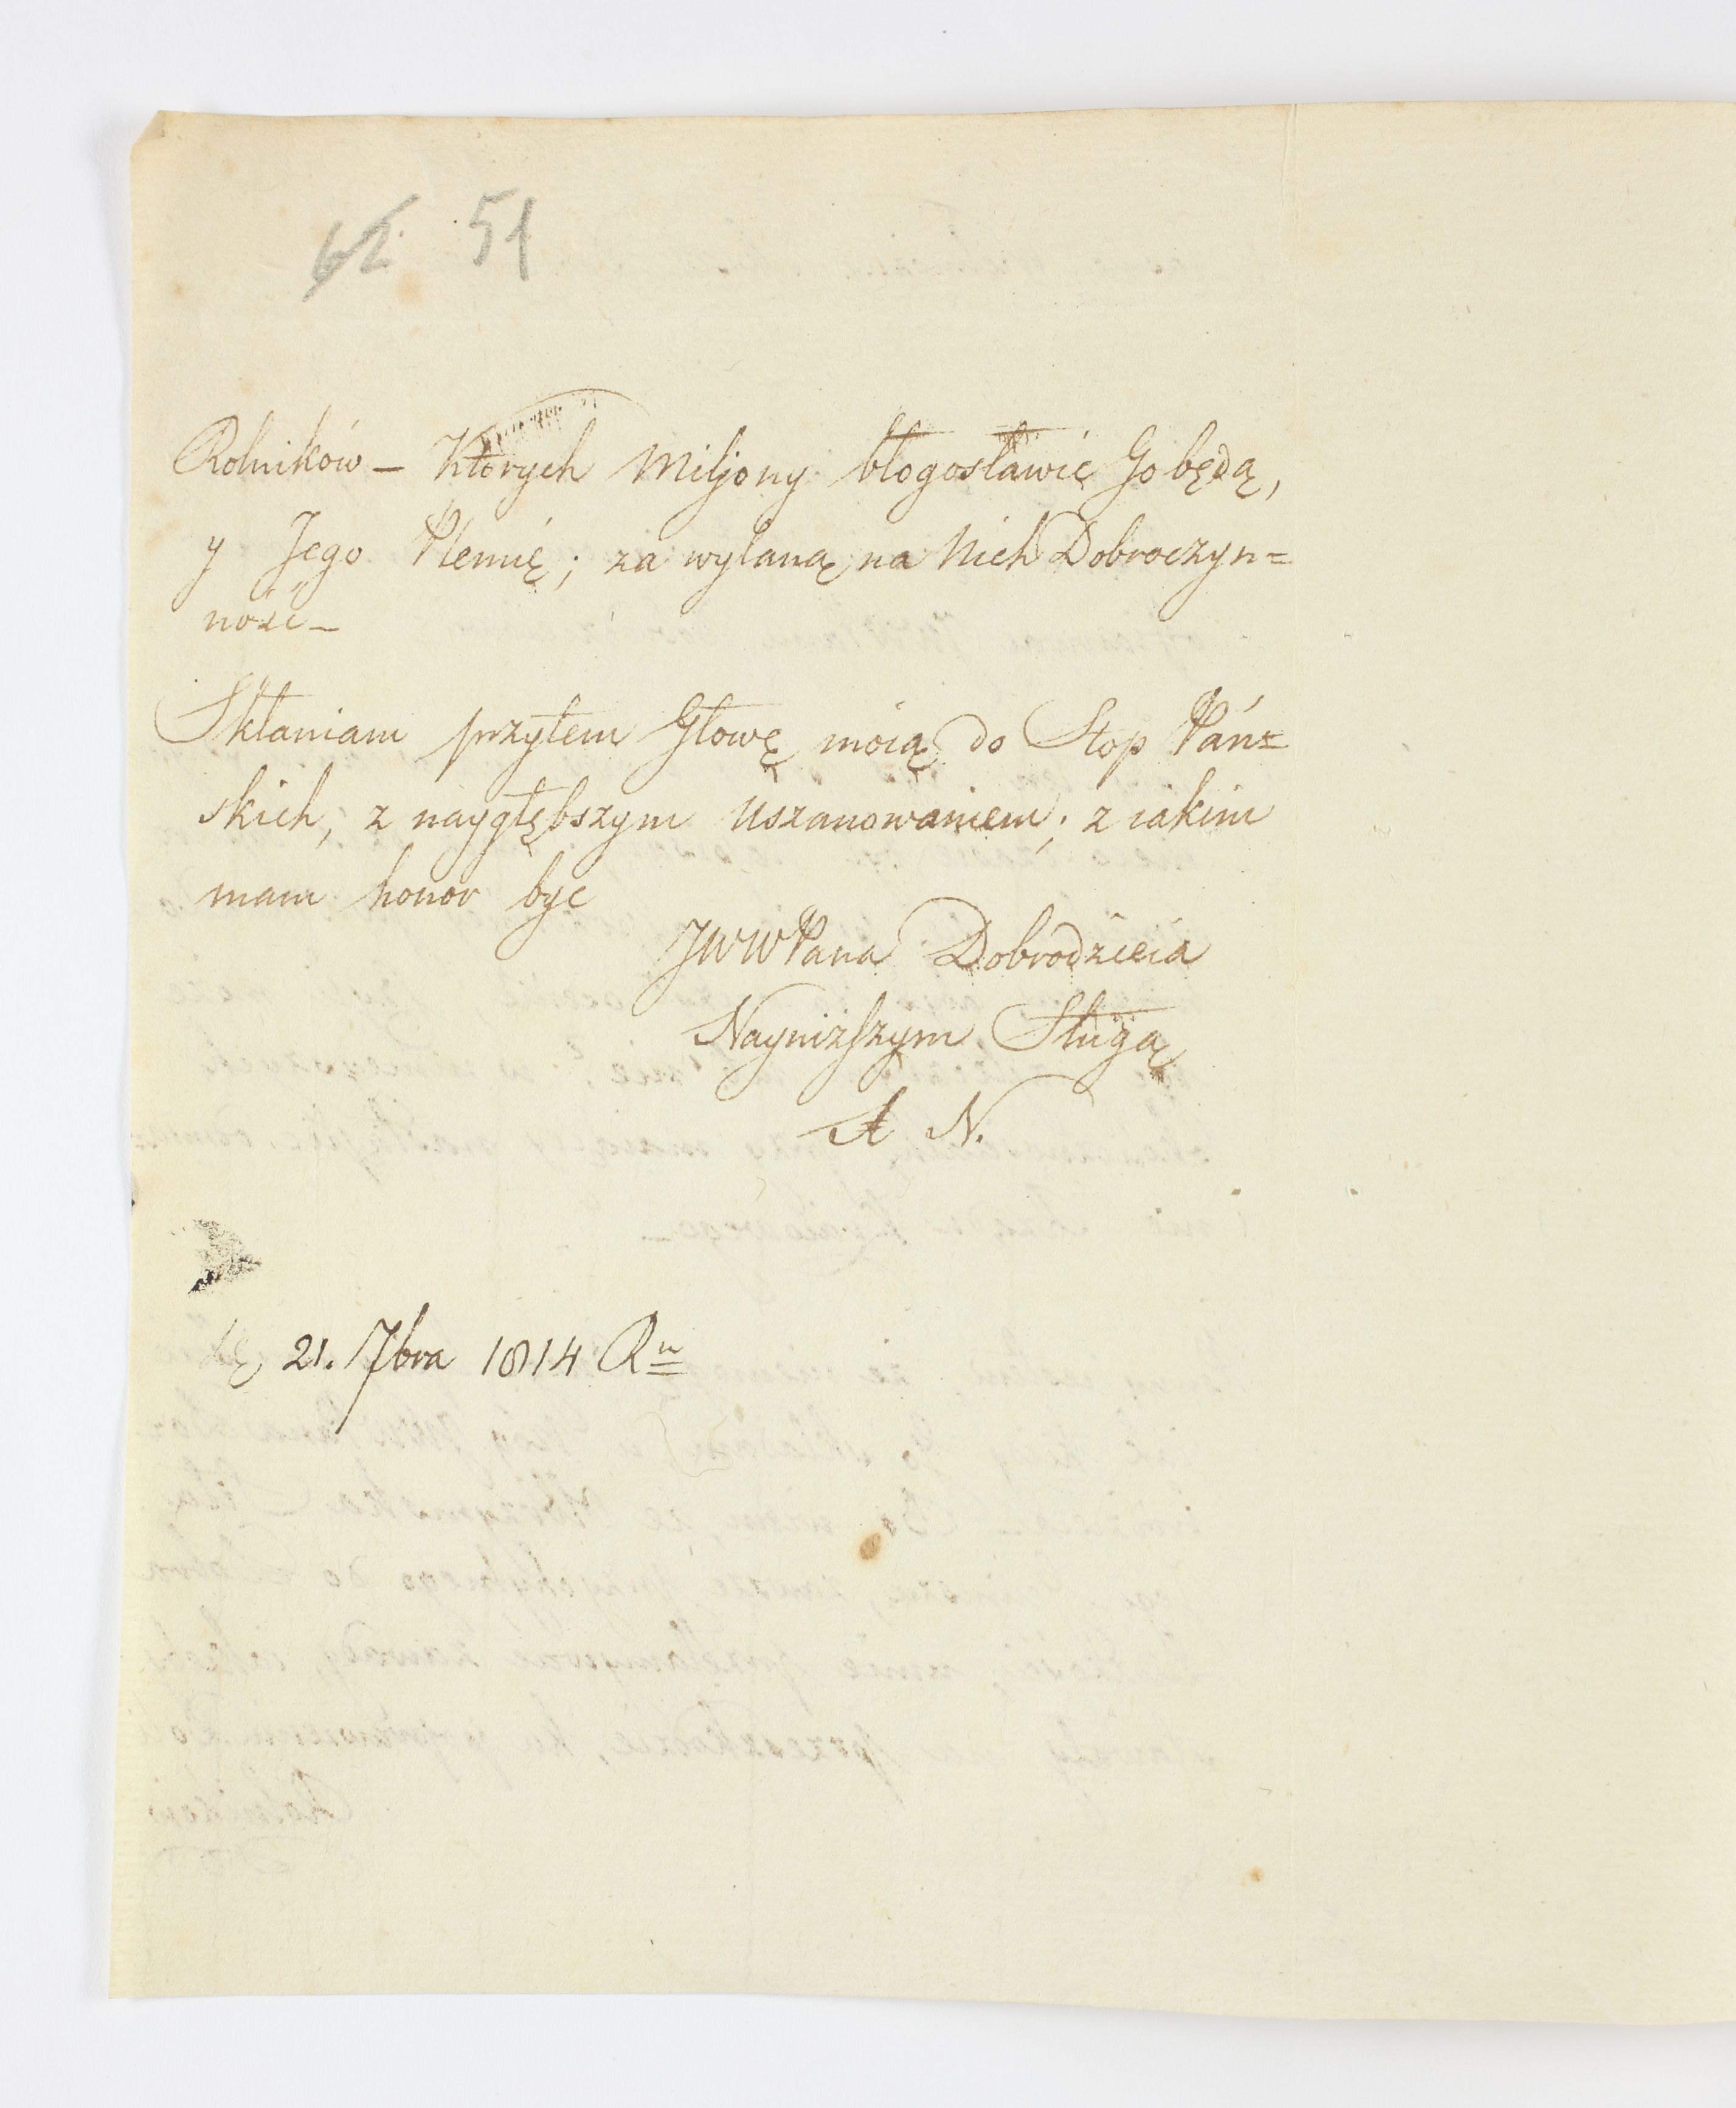 62 51
Rolników – Których Miljony błogosławić Go będą,
y Jego Plemię; za wylaną na Nich Dobroczyn=
ność –
Skłaniam przytem Głowę moią do Stop Pań=
skich, z naygłębszym Uszanowaniem; z iakim
mam honor być
JWWPana Dobrodzieia
Nayniższym Sługą
A N.
21. 7bra 1814 Ru